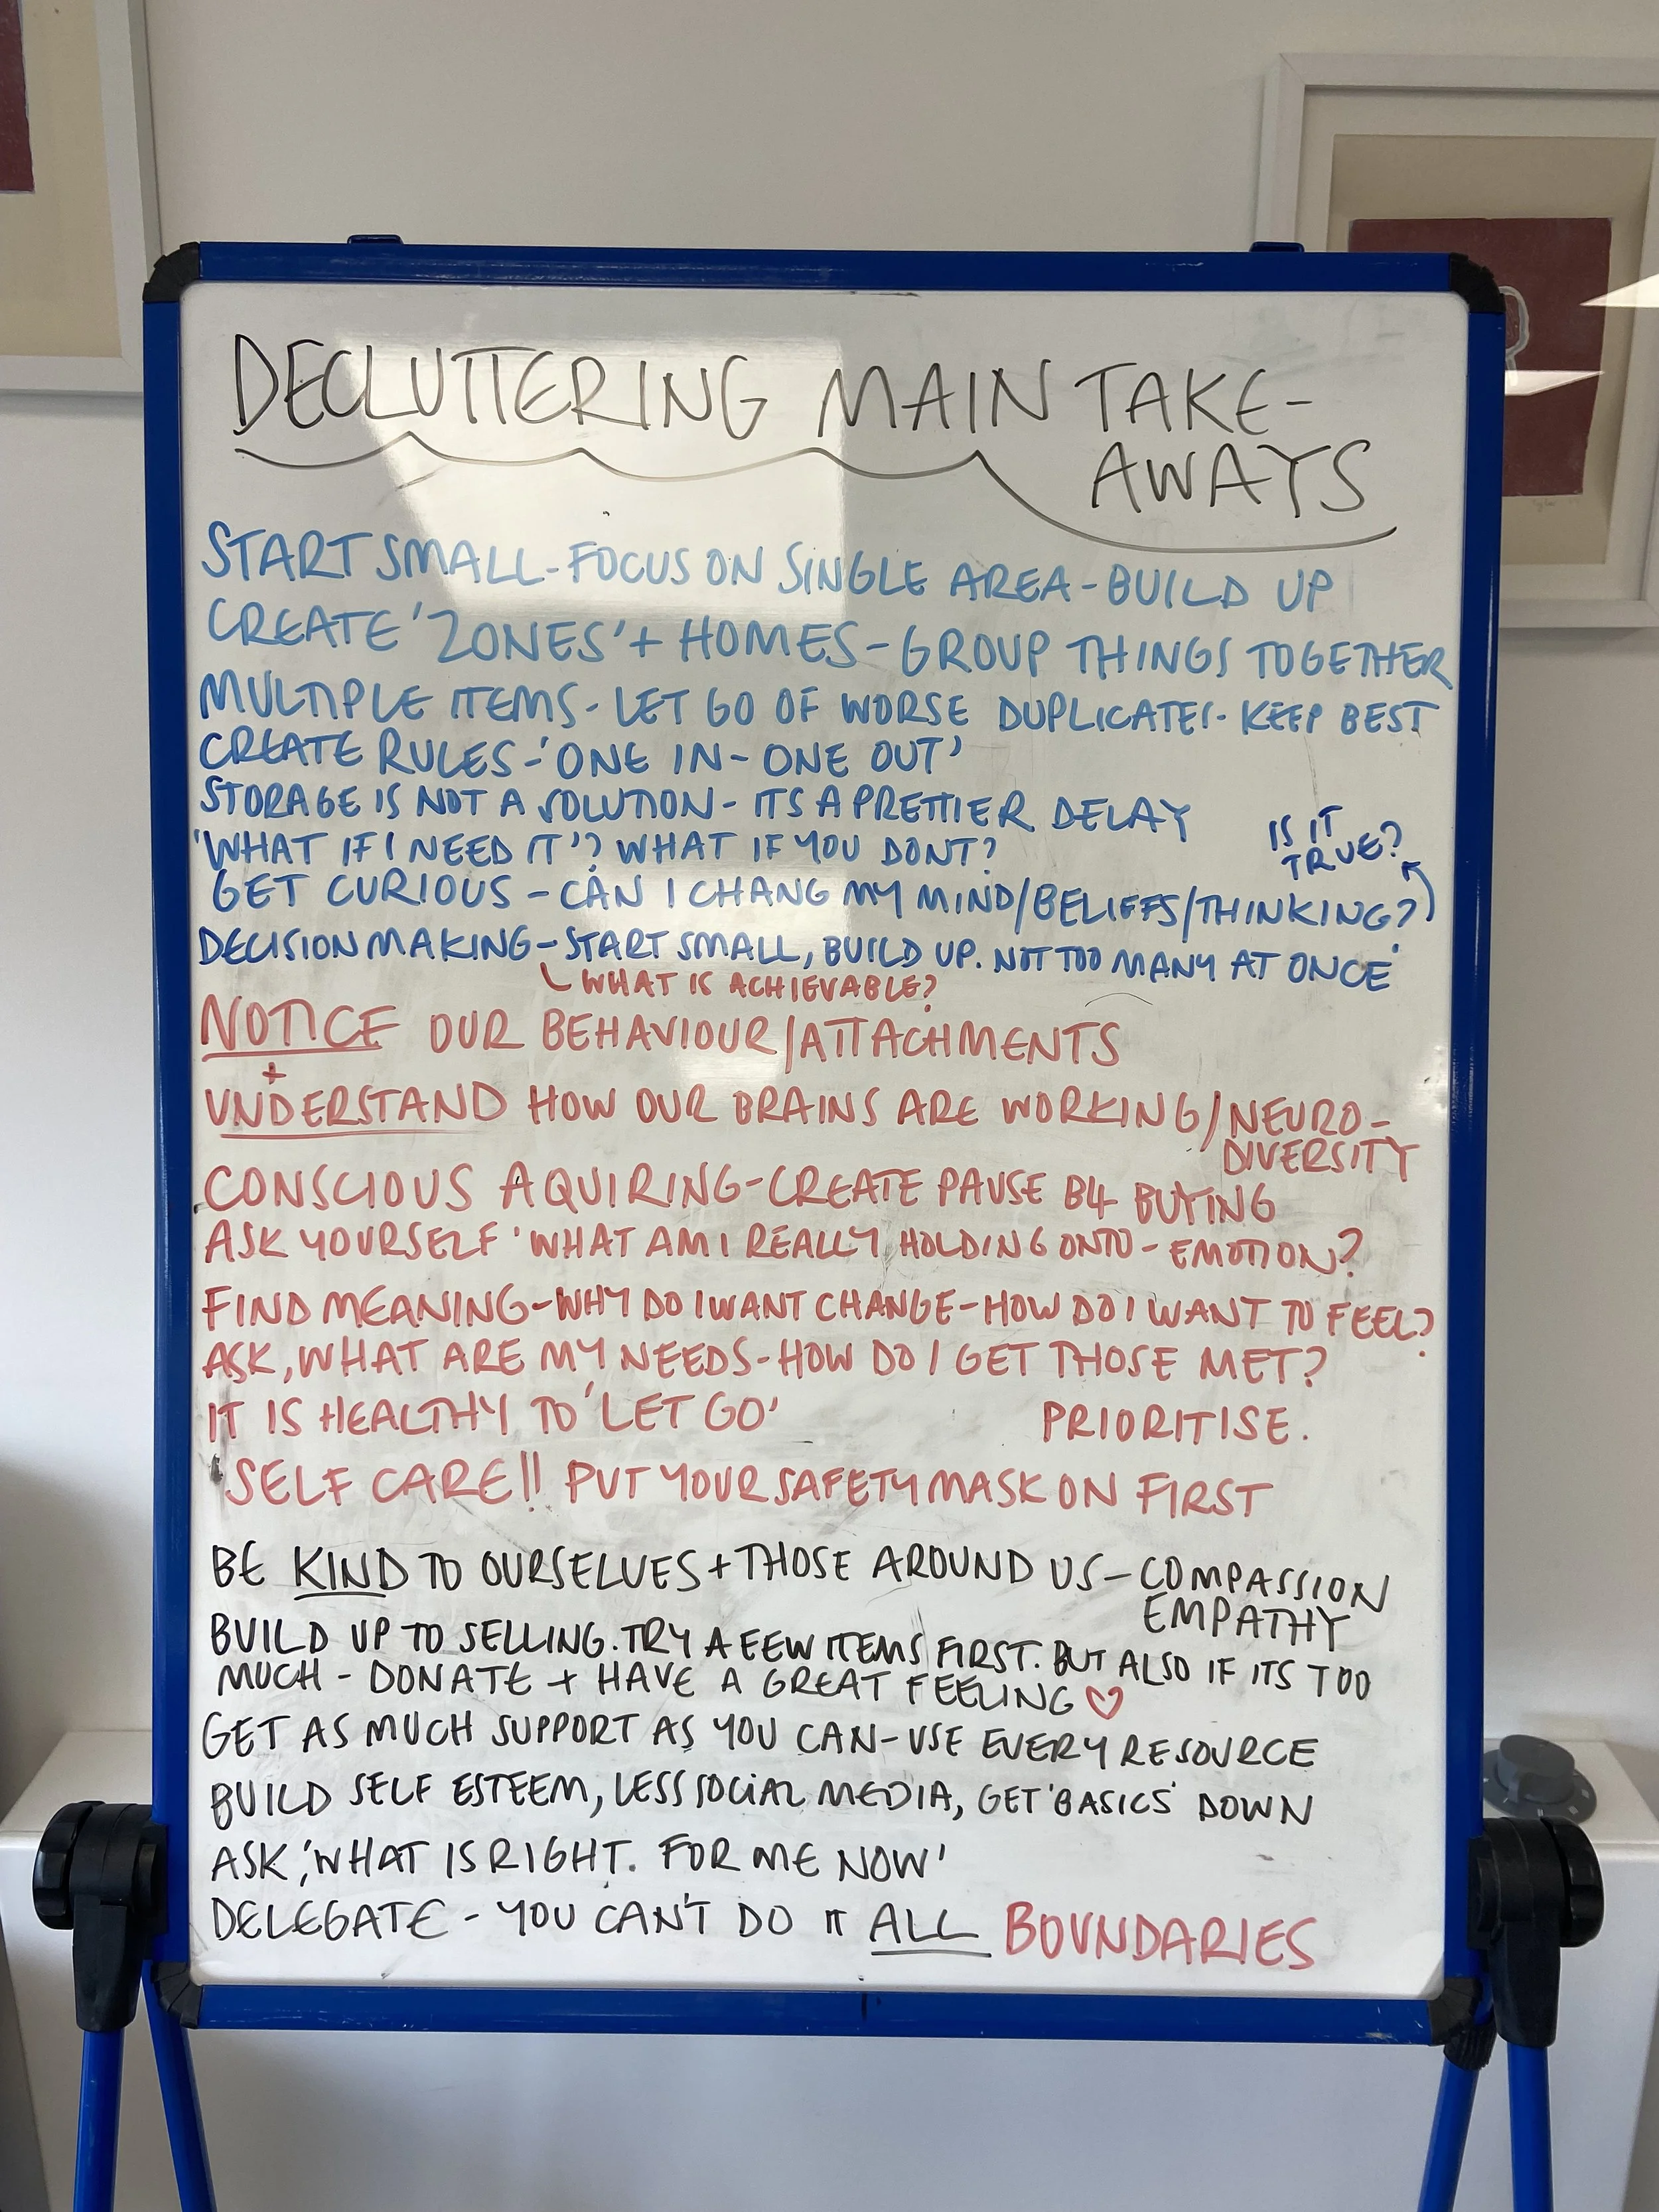 DECLUTTERING MAIN TAKE-
AWAYS
START SMALL - FOCUS ON SINGLE AREA - BUILD UP
CREATE 'ZONES' + HOMES - GROUP THINGS TOGETHER
MULTIPLE ITEMS - LET GO OF WORSE DUPLICATES - KEEP BEST
CREATE RULES - 'ONE IN - ONE OUT'
STORAGE IS NOT A SOLUTION - ITS A PRETTIER DELAY
'WHAT IF I NEED IT'? WHAT IF YOU DONT?
IS IT
TRUE?
GET CURIOUS - CAN I CHANG MY MIND/BELIEFS/THINKING?
DECISION MAKING - START SMALL, BUILD UP. NOT TOO MANY AT ONCE
WHAT IS ACHIEVABLE?
NOTICE OUR BEHAVIOUR/ATTACHMENTS
+
UNDERSTAND HOW OUR BRAINS ARE WORKING/NEURO-
DIVERSITY
CONSCIOUS AQUIRING - CREATE PAUSE B4 BUYING
ASK YOURSELF 'WHAT AM I REALLY HOLDING ONTO - EMOTION?
FIND MEANING - WHY DO I WANT CHANGE - HOW DO I WANT TO FEEL?
ASK, WHAT ARE MY NEEDS - HOW DO I GET THOSE MET?
IT IS HEALTHY TO 'LET GO' PRIORITISE.
SELF CARE!! PUT YOUR SAFETY MASK ON FIRST
BE KIND TO OURSELVES + THOSE AROUND US - COMPASSION
EMPATHY
BUILD UP TO SELLING. TRY A FEW ITEMS FIRST. BUT ALSO IF ITS TOO
MUCH - DONATE + HAVE A GREAT FEELING ♡
GET AS MUCH SUPPORT AS YOU CAN - USE EVERY RESOURCE
BUILD SELF ESTEEM, LESS SOCIAL MEDIA, GET 'BASICS' DOWN
ASK, 'WHAT IS RIGHT. FOR ME NOW'
DELEGATE - YOU CAN'T DO IT ALL BOUNDARIES